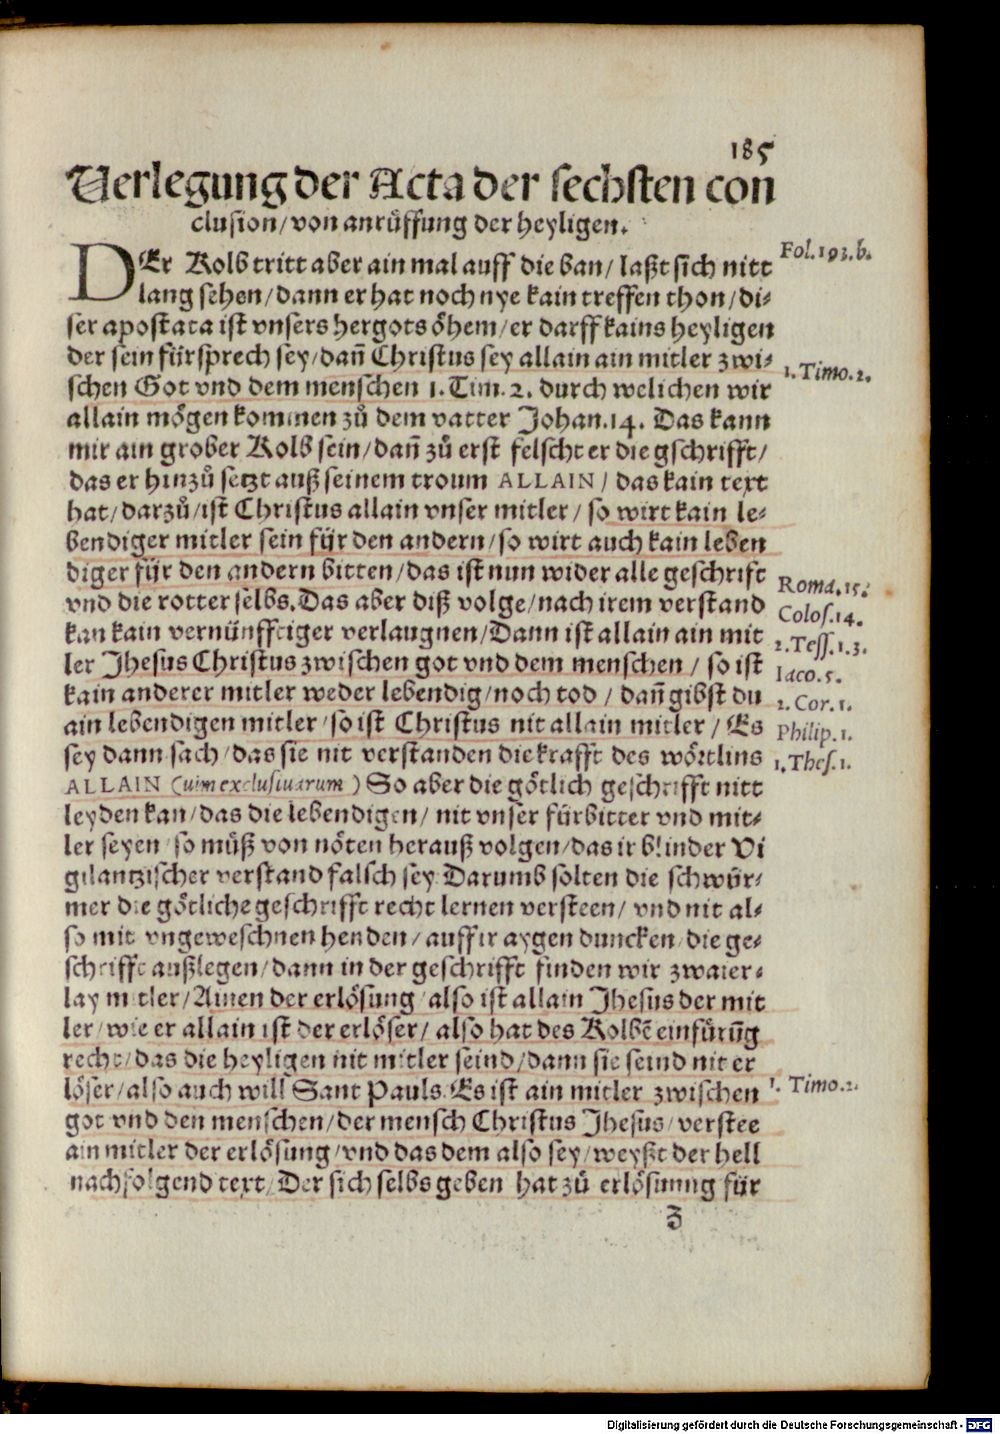 185
Verlegung der Acta der sechsten con
clusion/von anrůffung der heyligen.
DEr Kolb tritt aber ain mal auff die ban/ laßt sich nitt
Fol.193.b.
lang sehen/dann er hat noch nye kain treffen thon/di-
ser apostata ist vnsers hergots öhem/er darff kains heyligen
der sein fürsprech sey/dañ Christus sey allain ain mitler zwi-
schen Got vnd dem menschen 1.Tim.2. durch welichen wir
1.Timo.2.
allain mögen kommen zů dem vatter Johan.14. Das kann
mir ain grober Kolb sein/dañ zů erst felscht er die gschrifft/
das er hinzů setzt auß seinem troum ALLAIN/ das kain text
hat/darzů/ist Christus allain vnser mitler/ so wirt kain le-
bendiger mitler sein für den andern/so wirt auch kain leben
diger für den andern bitten/das ist nun wider alle geschrift
Roma.15.
vnd die rotter selbs.Das aber diß volge/nach irem verstand
Colos.14.
kan kain vernünfftiger verlaugnen/Dann ist allain ain mit
2.Tess.1.3.
ler Jhesus Christus zwischen got vnd dem menschen/ so ist
Iaco.5.
kain anderer mitler weder lebendig/noch tod/ dañ gibst du
2.Cor.1.
ain lebendigen mitler/so ist Christus nit allain mitler/ Es
Philip.1.
sey dann sach/das sie nit verstanden die krafft des wörtlins
1.Thes.1.
ALLAIN (uim exclusiuarum) So aber die götlich geschrifft nitt
leyden kan/das die lebendigen/ nit vnser fürbitter vnd mit-
ler seyen/so můß von nöten herauß volgen/das ir blinder Vi
gilantzischer verstand falsch sey.Darumb solten die schwür-
mer die götliche geschrifft recht lernen versteen/ vnd nit al-
so mit vngeweschnen henden/auff ir aygen duncken/die ge-
schrifft außlegen/dann in der geschrifft finden wir zwaier-
lay mitler/Ainen der erlösung/also ist allain Jhesus der mit
ler/wie er allain ist der erlöser/ also hat des Kolbē einfürūg
recht/das die heyligen nit mitler seind/dann sie seind nit er
löser/also auch will Sant Pauls.Es ist ain mitler zwischen
1. Timo.2.
got vnd den menschen/der mensch Christus Jhesus/verstee
ain mitler der erlösung/vnd das dem also sey/weyßt der hell
nachfolgend text/Der sich selbs geben hat zů erlösunng für
Z
Digitalisierung gefördert durch die Deutsche Forschungsgemeinschaft - DFG